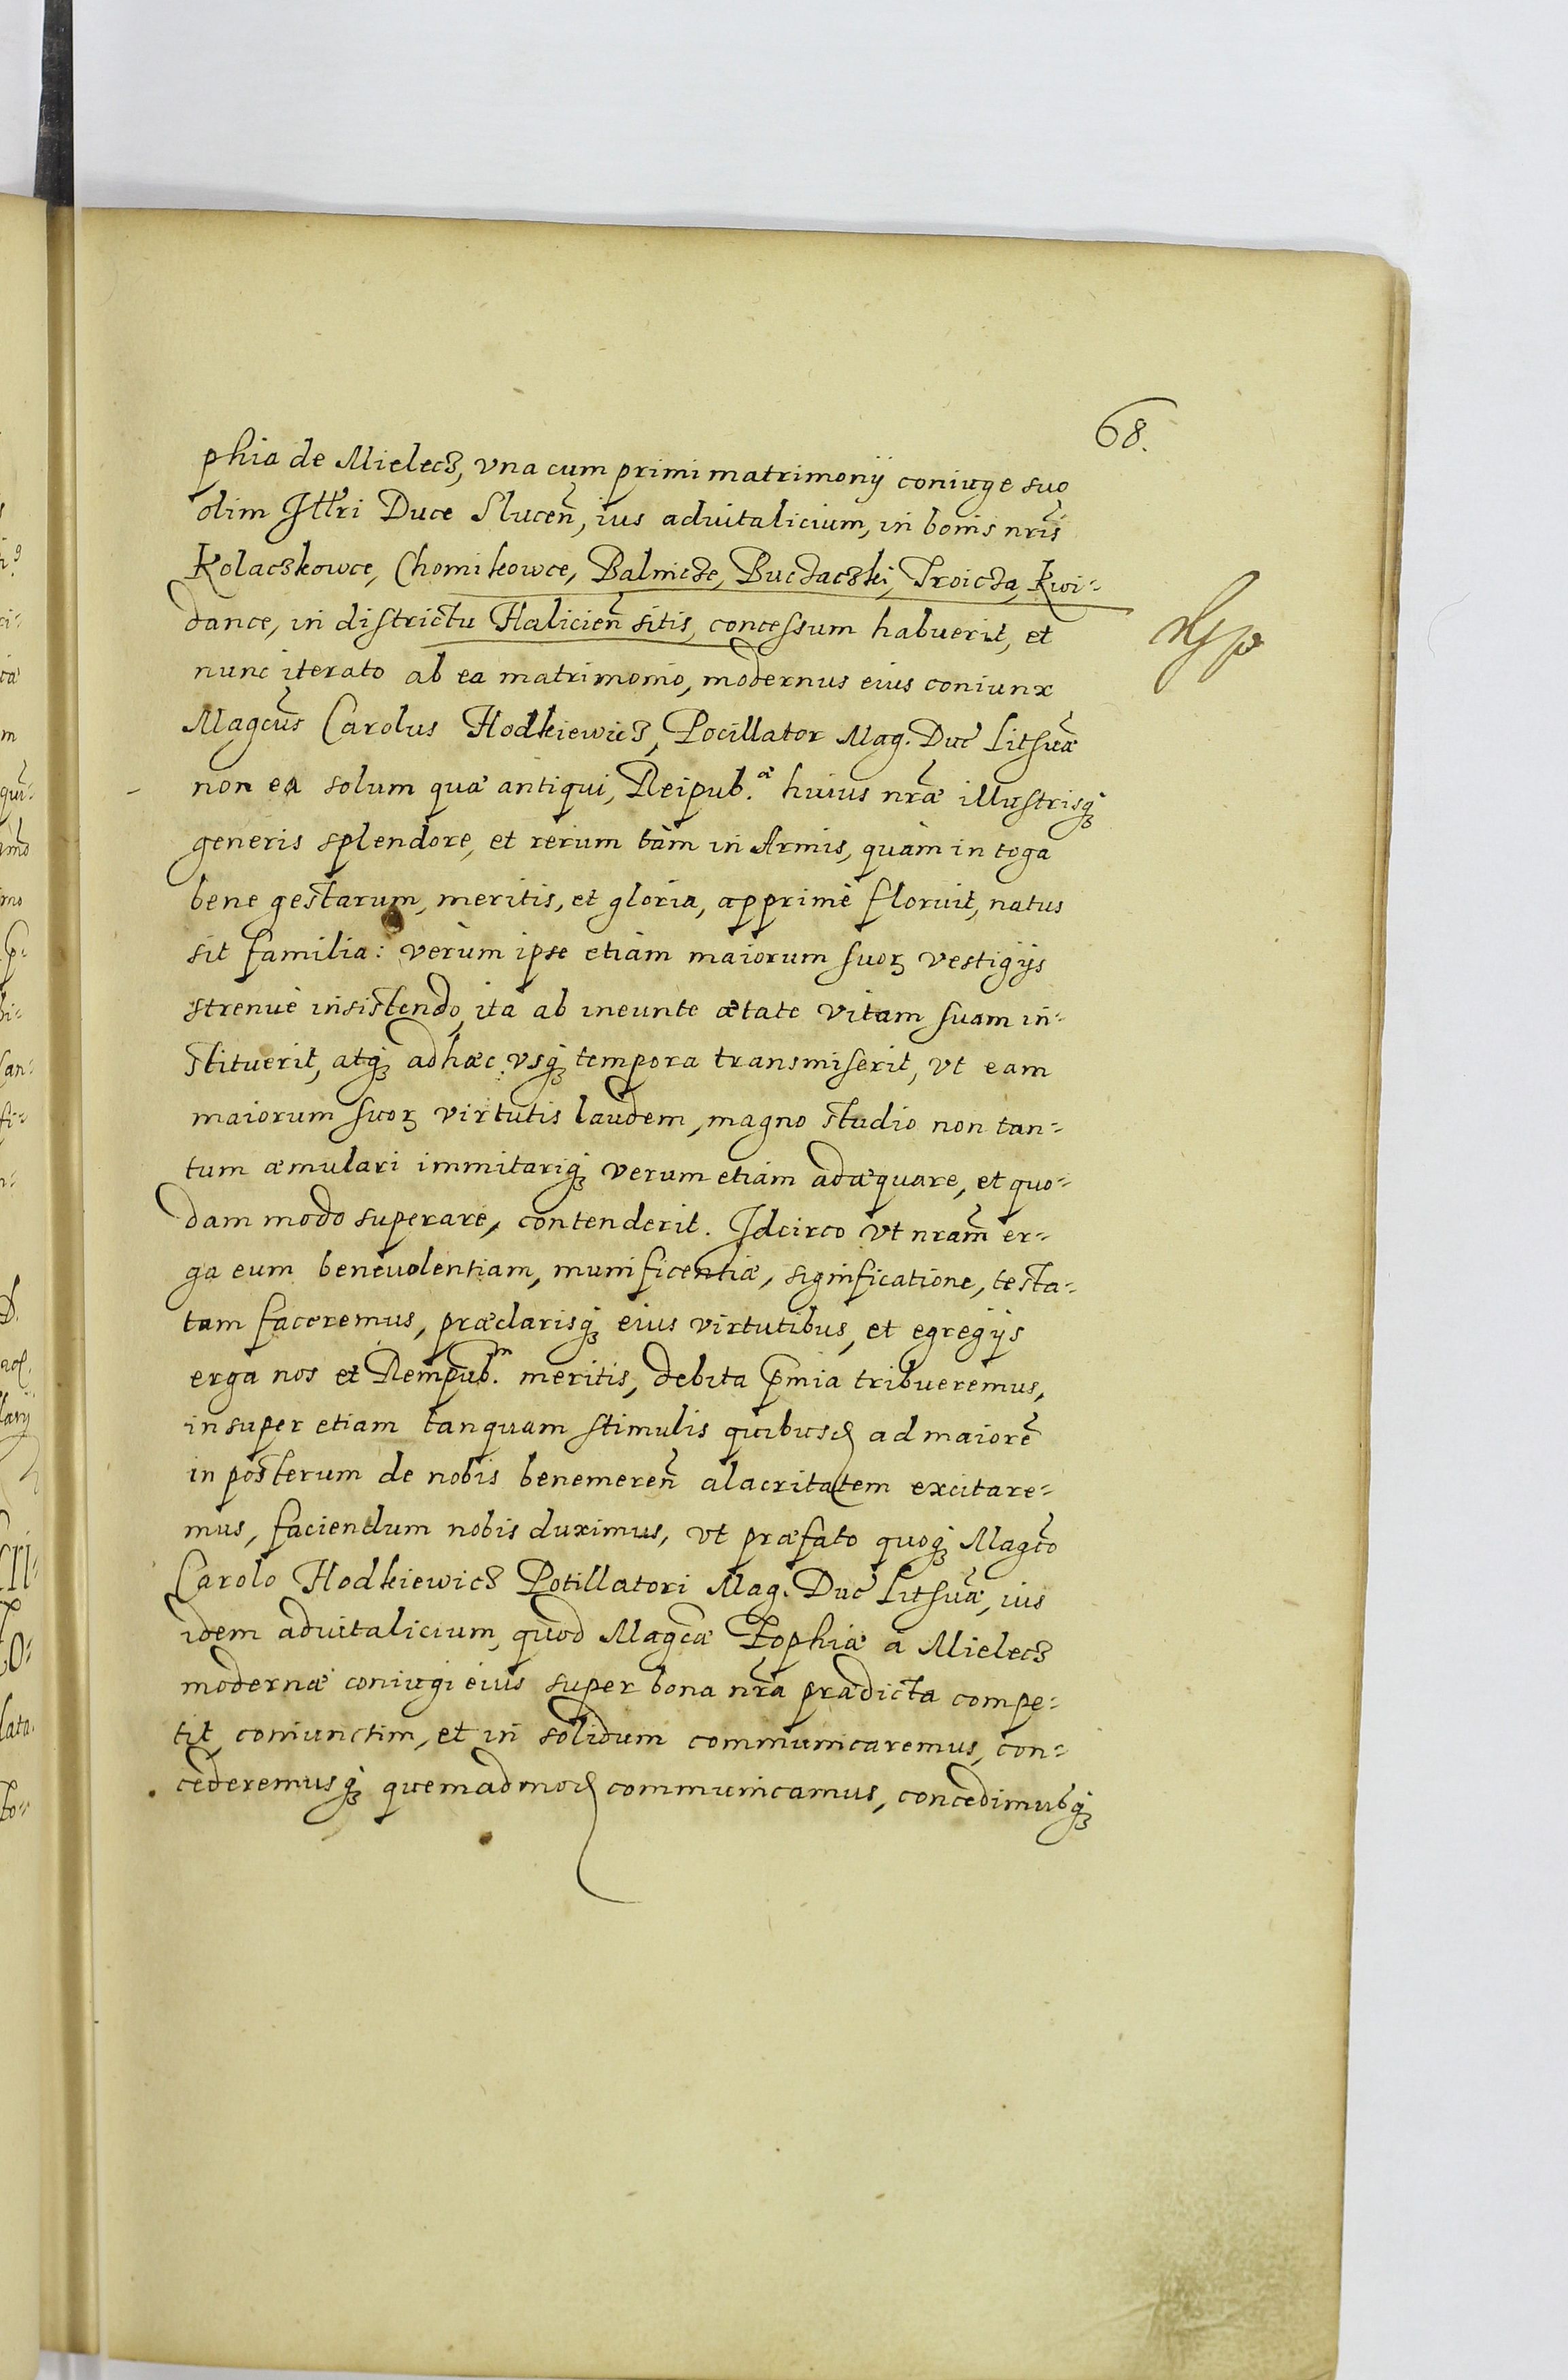 68.
phia de Mielecz, vna cum primi matrimonij coniuge suo
olim Illri Duce Slucen̄, ius aduitalicium, in bonis nr̄is
Kolaczkowce, Chomikowce, Balincze, Buczaczki, Troicza, Kwi-
dance, in districtu Halicien̄ sitis, concessum habuerit, et
nunc iterato ab ea matrimonio, modernus eius coniunx
Magcus Carolus Hodkiewicz, Pocillator Mag. Duc Lithuæ
non ea solum quæ antiqui, Reipub.æ huius nr̄æ illustrisq;
generis splendore, et rerum tàm in Armis, quàm in toga
bene gestarum, meritis, et gloria, apprimè floruit, natus
sit familia: verùm ipse etiàm maiorum suoꝝ vestigijs
strenuè insistendo, ita ab ineunte ætate vitam suam in-
stituerit, atq; ad hæc vsq; tempora transmiserit, vt eam
maiorum suoꝝ virtutis laudem, magno studio non tan-
tum æmulari immitariq; verum etiàm adæquare, et quo-
dam modo superare, contenderit. Idcirco vt nr̄am er-
ga eum beneuolentiam, munificentiæ, significatione, testa-
tam faceremus, præclarisq; eius virtutibus, et egregijs
erga nos et Rempub.m meritis, debita p̄mia tribueremus,
insuper etiam tanquam stimulis quibusd ad maiorē
in posterum de nobis benemeren̄ alacritatem excitare-
mus, faciendum nobis duximus, vt præfato quoq; Magco
Carolo Hodkiewicz Potillatori Mag. Duc Lithuæ, ius
idem aduitalicium, quod Magcæ Zophiæ à Mielecz
modernæ coniugi eius super bona nr̄a prædicta compe-
tit, coniunctim, et in solidum communicaremus, con-
cederemusq; quemadmod communicamus, concedimusq;